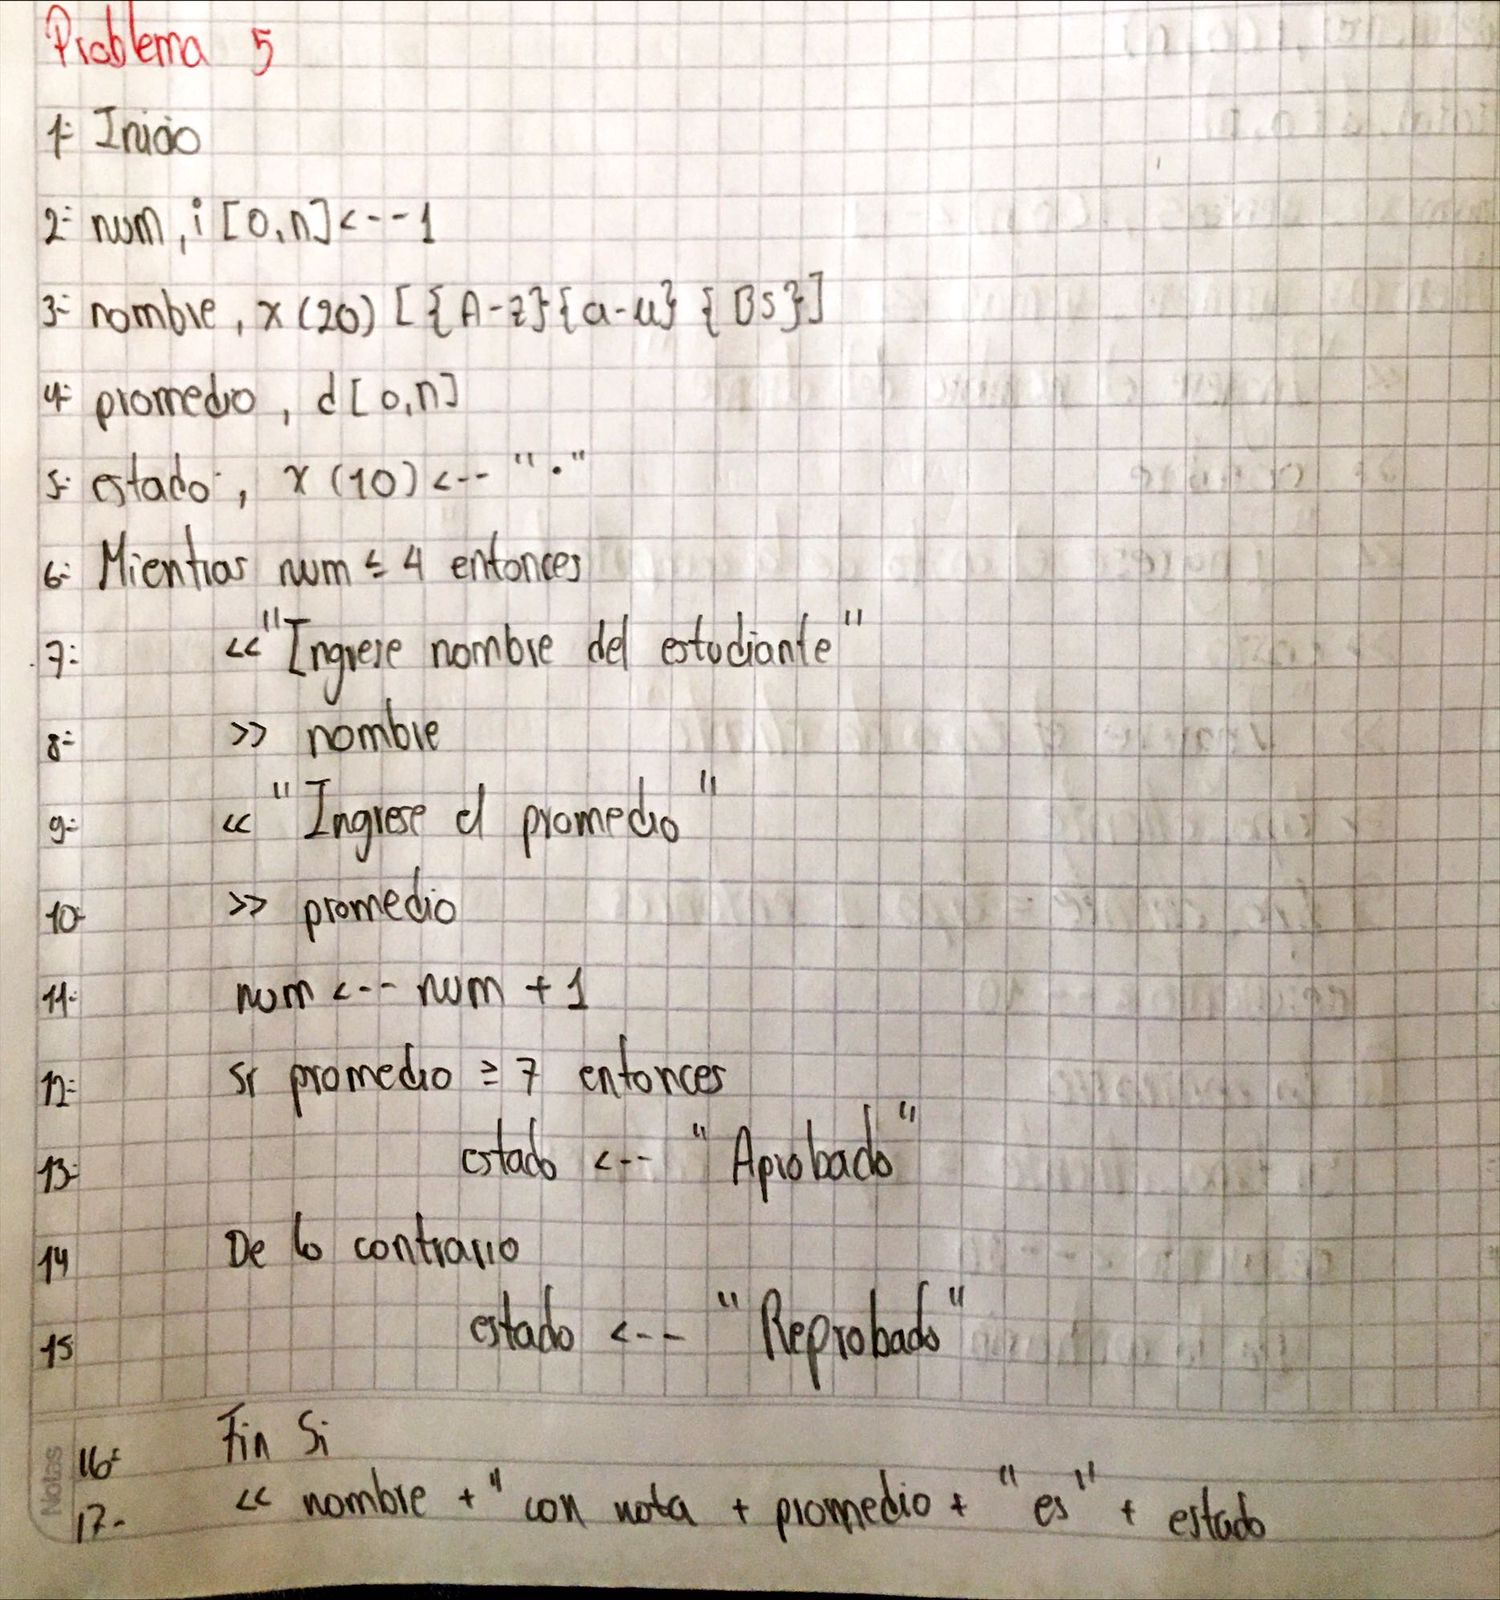 Problema 5
1- Inicio
2- num, i [0,n] <-- 1
3- nombre, x (20) [{A-z}{a-u} {Bs}]
4- promedio, d [0,n]
5- estado, x (10) <-- "."
6- Mientras num ≤ 4 entonces
7- << "Ingrese nombre del estudiante"
8- >> nombre
9- << "Ingrese el promedio"
10- >> promedio
11- num <-- num + 1
12- Si promedio ≥ 7 entonces
13- estado <-- "Aprobado"
14 De lo contrario
15 estado <-- "Reprobado"
16- Fin Si
17- << nombre + " con nota + promedio + "es" + estado
Notas